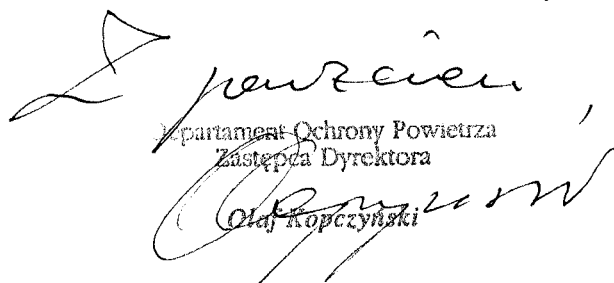 Z poważaniem
Departament Ochrony Powietrza
Zastępca Dyrektora
Olaf Kopczyński